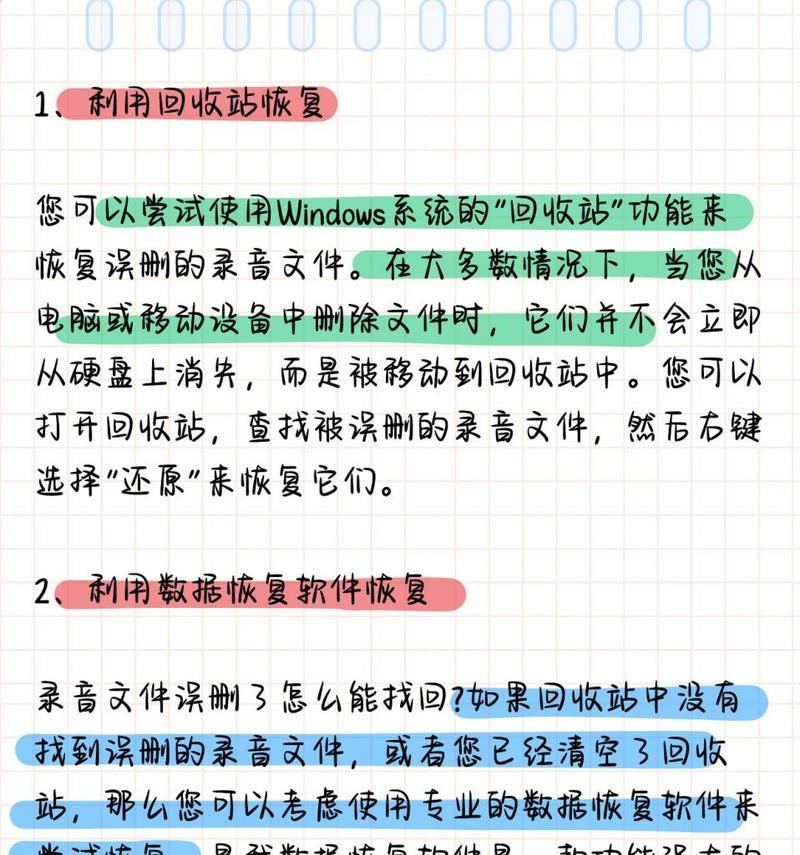 1、利用回收站恢复
您可以尝试使用Windows系统的"回收站"功能来
恢复误删的录音文件。在大多数情况下，当您从
电脑或移动设备中删除文件时，它们并不会立即
从硬盘上消失，而是被移动到回收站中。您可以
打开回收站，查找被误删的录音文件，然后右键
选择"还原"来恢复它们。
2、利用数据恢复软件恢复
录音文件误删了怎么能找回?如果回收站中没有
找到误删的录音文件，或者您已经清空了回收
站，那么您可以考虑使用专业的数据恢复软件来